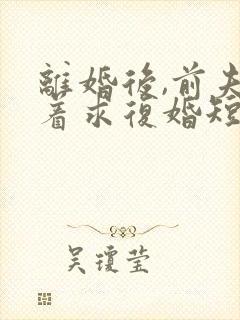 離婚後,前夫
着求復婚短
吳瓊瑩